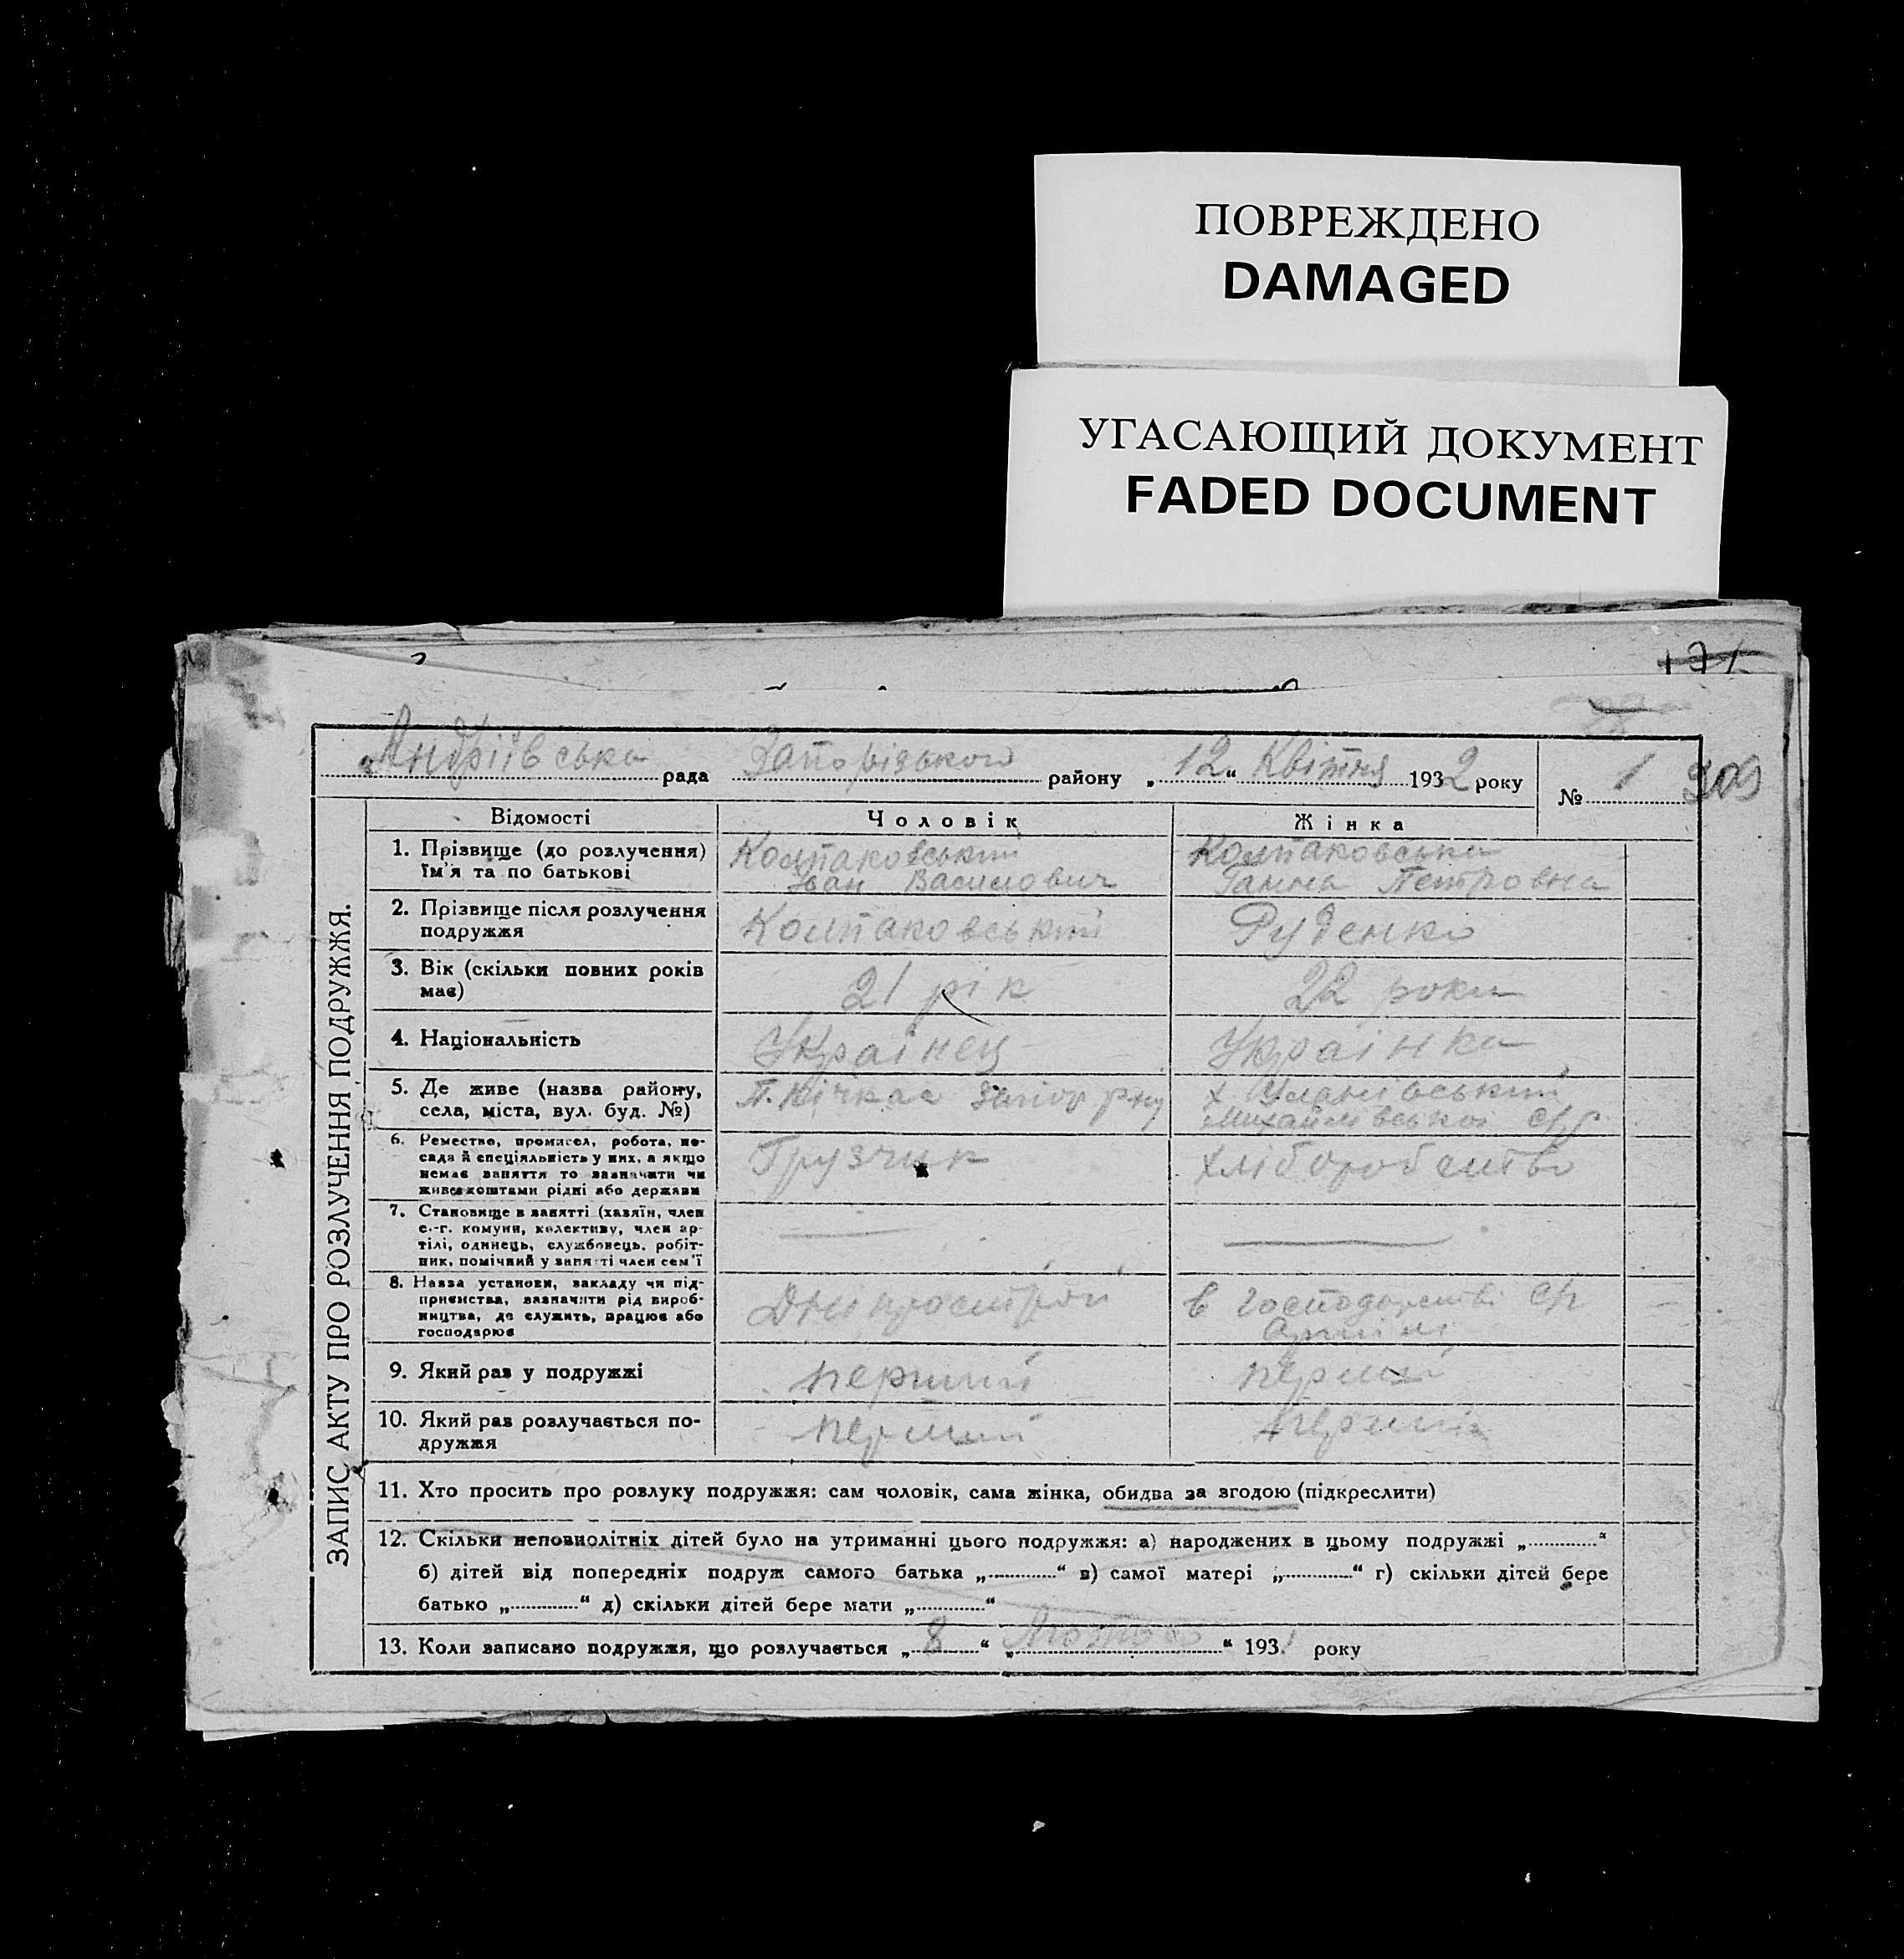 ПОВРЕЖДЕНО
DAMAGED
УГАСАЮЩИЙ ДОКУМЕНТ
FADED DOCUMENT
171
Андріївська рада Запорізького району „12“ Квітня 1932 року № 1 309
ЗАПИС АКТУ ПРО РОЗЛУЧЕННЯ ПОДРУЖЖЯ.
Відомості Чоловік Жінка
1. Прізвище (до розлучення) Колпаковський Колпаковська
їм'я та по батькові Іван Василович Ганна Петровна
2. Прізвище після розлучення Колпаковський Руденко
подружжя
3. Вік (скільки повних років 21 рік 22 роки
має)
4. Національність Украінец Украінка
5. Де живе (назва району, П. Кічкас Запор р-ну х
села, міста, вул. буд. №) Михайлівської с/р
6. Ремество, промисел, робота, по-
сада й спеціяльність у них, а якщо Грузчик хліборобство
немає заняття то зазначити чи
живе коштами рідні або держави
7. Становище в занятті (хазяїн, член
с.-г. комуни, колективу, член ар-
тілі, одинець, службовець, робіт-
ник, помічний у занятті член сем'ї
8. Назва установи, закладу чи під-
приємства, зазначити рід вироб- Днипрострой в господарстві с/г
ництва, де служить, працює або артілі
господарює
9. Який раз у подружжі перший перший
10. Який раз розлучається по- перший перший
дружжя
11. Хто просить про розлуку подружжя: сам чоловік, сама жінка, обидва за згодою (підкреслити)
12. Скільки неповнолітніх дітей було на утриманні цього подружжя: а) народжених в цьому подружжі „............“
б) дітей від попередніх подруж самого батька „............“ в) самої матері „............“ г) скільки дітей бере
батько „............“ д) скільки дітей бере мати „............“
13. Коли записано подружжя, що розлучається „8“ „Лютого“ 193 року